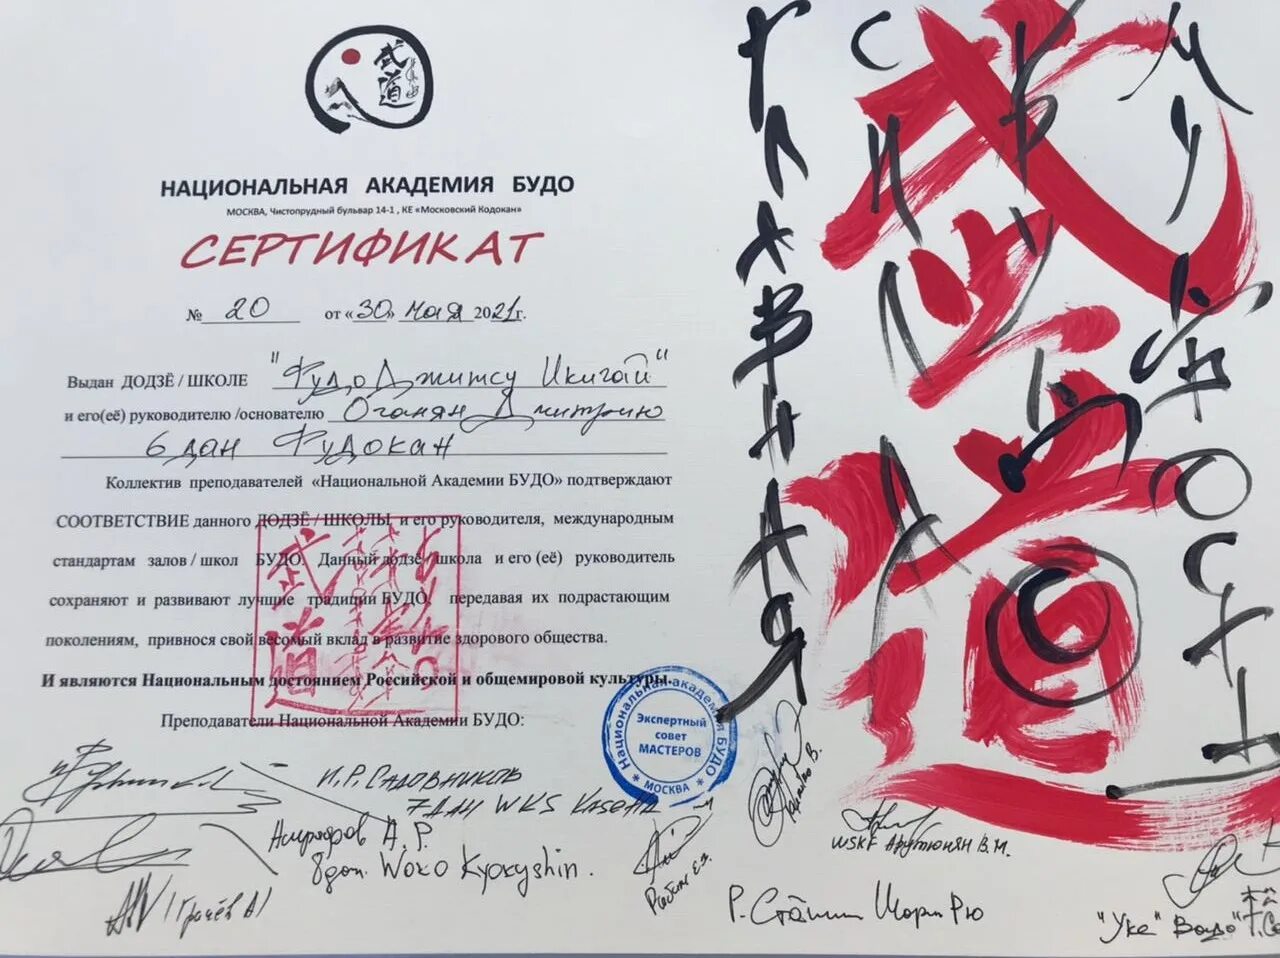 武道
НАЦИОНАЛЬНАЯ АКАДЕМИЯ БУДО
МОСКВА, Чистопрудный бульвар 14-1 , КЕ «Московский Кодокан»
СЕРТИФИКАТ
№ 20 от «30» мая 2021г.
Выдан ДОДЗЁ / ШКОЛЕ "ФудоДжитсу Икигай"
и его(её) руководителю /основателю Оганян Дмитрию
6 дан Фудокан
Коллектив преподавателей «Национальной Академии БУДО» подтверждают
СООТВЕТСТВИЕ данного ДОДЗЁ / ШКОЛЫ и его руководителя, международным
стандартам залов / школ БУДО. Данный додзё школа и его (её) руководитель
сохраняют и развивают лучшие традиции БУДО, передавая их подрастающим
поколениям, привнося свой весомый вклад в развитие здорового общества.
И являются Национальным достоянием Российской и общемировой культуры.
Преподаватели Национальной Академии БУДО:
武道
Национальная академия БУДО
Экспертный
совет
МАСТЕРОВ
* МОСКВА *
И.Р. Садовников
7 ДАН WKS Kasena
Ашрафов А.Р.
8 дан. Woko Kyokyshin.
(Грачёв А)
WSKF Арутюнян В.М.
Р. Стайлин Шорин Рю
"Уке" Вадо"
ГЛАВНАЯ
武道